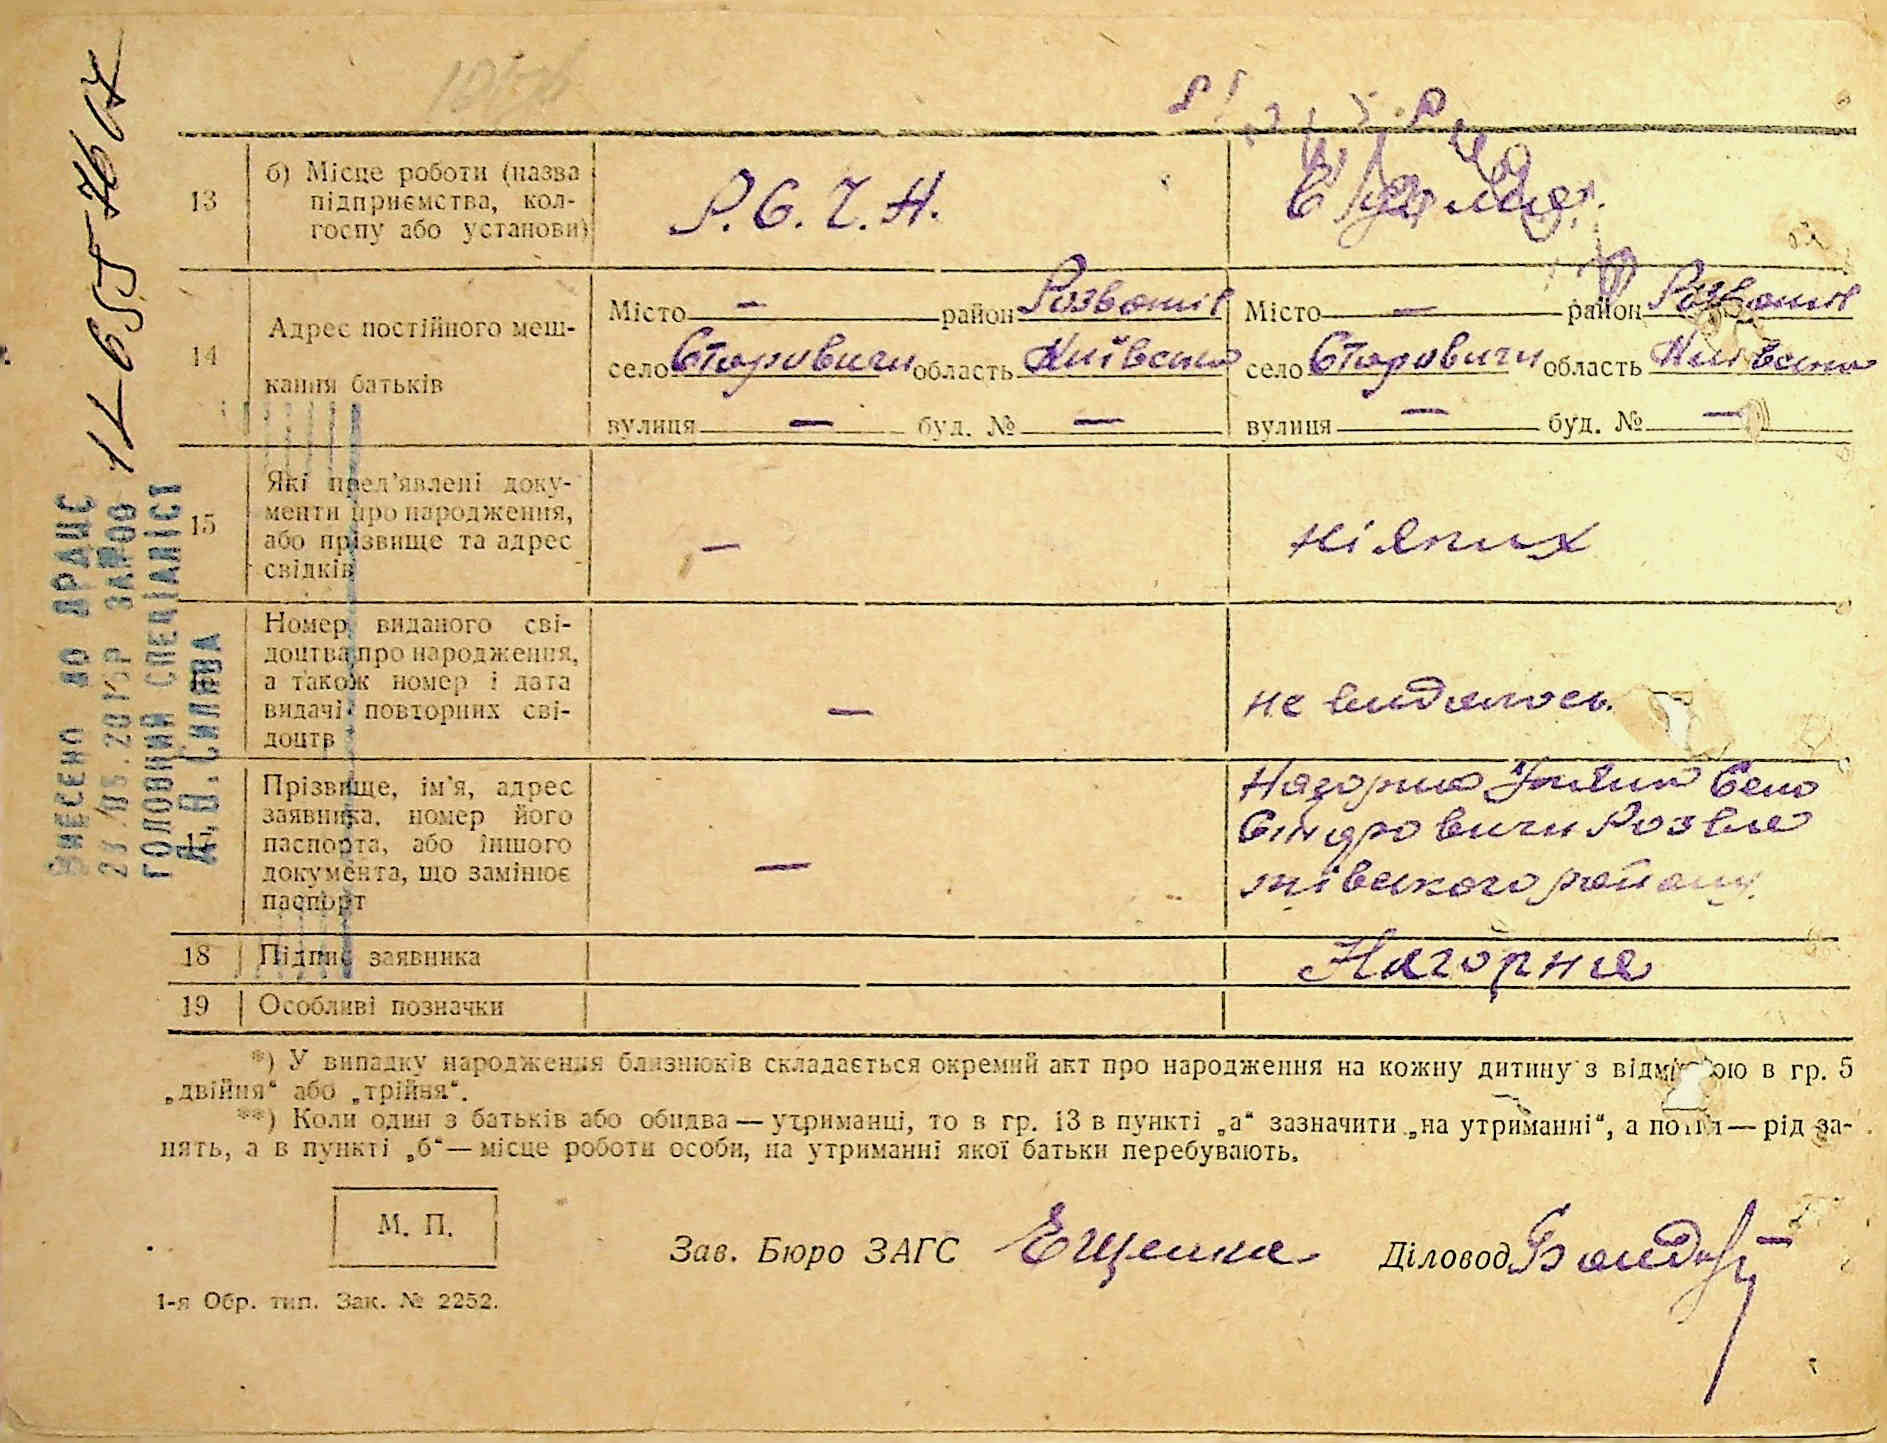 13
б) Місце роботи (назва
підприємства, кол-
госпу або установи)
Р. С. Ч. Н.
14
Адрес постійного меш-
кання батьків
Місто — район Розважів
село Старовичи область Київська
вулиця — буд. № —
Місто — район Розважів
село Старовичи область Київська
вулиця — буд. № —
15
Які пред'явлені доку-
менти про народження,
або прізвище та адрес
свідків
—
ніяких
Номер виданого сві-
доцтва про народження,
а також номер і дата
видачі повторних сві-
доцтв
—
не видалось.
Прізвище, ім'я, адрес
заявника, номер його
паспорта, або іншого
документа, що замінює
паспорт
—
Нагорна Село
Розва
жівського району
18
Підпис заявника
Нагорна
19
Особливі позначки
*) У випадку народження близнюків складається окремий акт про народження на кожну дитину з відміткою в гр. 5
„двійня“ або „трійня“.
**) Коли один з батьків або обидва — утриманці, то в гр. 13 в пункті „а“ зазначити „на утриманні“, а потім — рід за-
нять, а в пункті „б“ — місце роботи особи, на утриманні якої батьки перебувають.
М. П.
Зав. Бюро ЗАГС Ещенко
Діловод
1-я Обр. тип. Зак. № 2252.
ВНЕСЕНО ДО ДРАЦС
ГОЛОВНИЙ СПЕЦІАЛІСТ